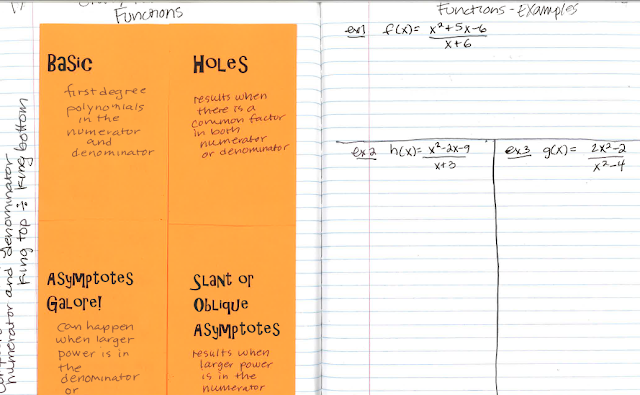 Functions
Basic
first degree
polynomials
in the
numerator
and
denominator
Holes
results when
there is a
common factor
in both
numerator
or denominator
Asymptotes
Galore!
can happen
when larger
power is in
the
denominator
or
Slant or
Oblique
Asymptotes
results when
larger power
is in the
numerator
numerator and denominator
King top ÷ King bottom
Functions - Examples
ex1 f(x)= x²+5x-6
x+6
ex 2 h(x)= x²-2x-9
x+3
ex 3 g(x)= 2x²-2
x²-4